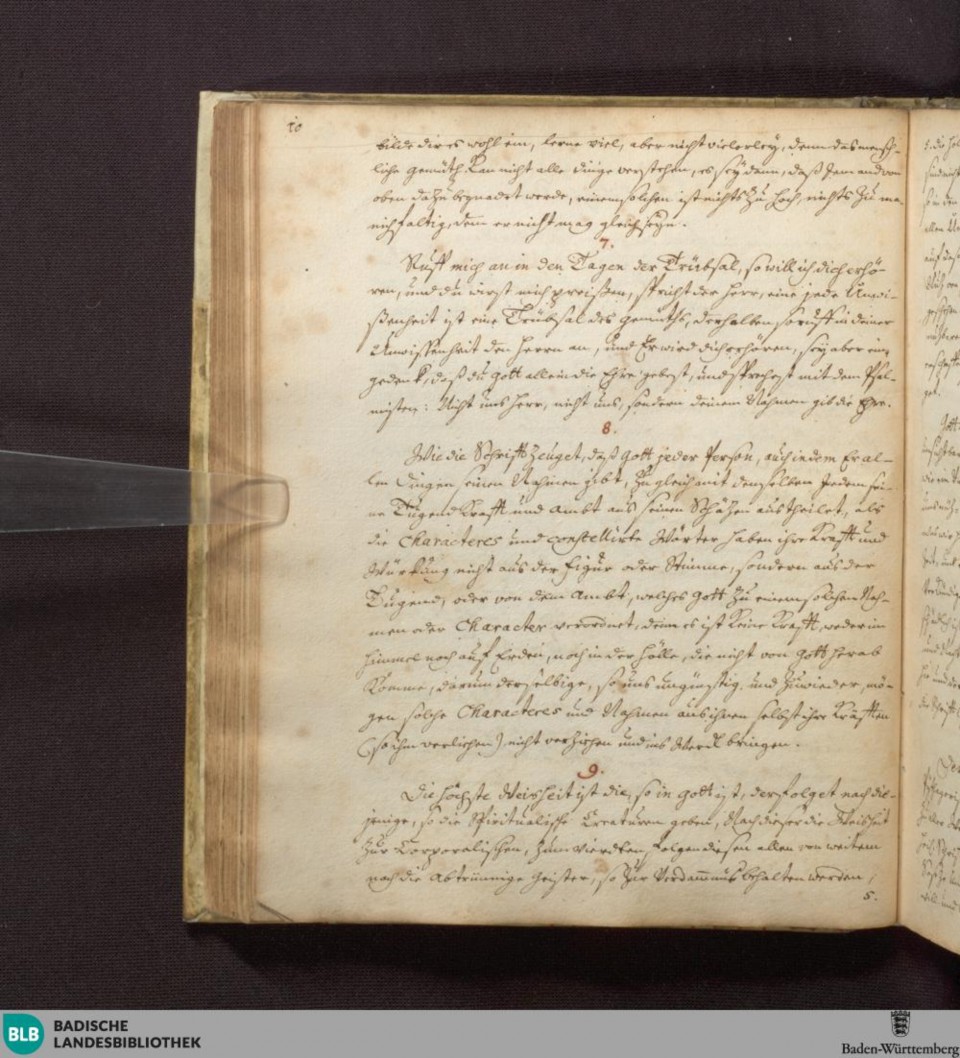 10
bilde dir es wohl ein, lerne viel, aber nicht vielerley, denn das mensch-
liche gemüth kan nicht alle dinge verstehen, es sey denn, daß jemand von
oben dazu begnadet werde, einem solchen ist nichts zu hoch, nichts zu ma-
nichfaltig, dem er nicht mag gleich seyn.
7.
Ruff mich an in den Tagen der Trübsal, so will ich dich erhö-
ren, und du wirst mich preißen, spricht der Herr, eine jede Unwi-
ßenheit ist eine Trübsal des gemüths, derhalben so ruff in deiner
Unwissenheit den Herrn an, und Er wird dich erhören, sey aber ein-
gedenk, daß du Gott allein die Ehre gebest, und sprechest mit dem Psal-
misten: Nicht uns Herr, nicht uns, sondern deinem Nahmen gib die Ehre.
8.
Wie die Schrifft zeuget, daß Gott jeder Person, auch indem Er al-
len Dingen seinen Nahmen gibt, zugleich mit denselben jedem sei-
ne Tugend Krafft und Ambt aus seinen Schäzen austheilet, als
die Characteres und constellirte Wörter haben ihre Krafft und
Würkung nicht aus der figur oder Stimme, sondern aus der
Tugend, oder von dem Ambt, welches Gott zu einem solchen Nah-
men oder Character verordnet, denn es ist keine Krafft, weder im
Himmel noch auf Erden, noch in der Hölle, die nicht von Gott herab
komme, darum derselbige, so uns ungünstig und zuwieder, mö-
gen solche Characteres und Nahmen aus ihnen selbst ihre Kräfften
(so ihm verliehen) nicht verziehen und ins Werck bringen.
9.
Die höchste Weisheit ist die, so in Gott ist, der folget nach die-
jenige, so die Spiritualische Creaturen geben, Nach dieser die Weisheit
zur Corporalischen, zum vierdten folgen diesen allen von weitem
nach die Abtrünnige Geister, so zur Verdamnus behalten werden,
5.
BLB
BADISCHE
LANDESBIBLIOTHEK
Baden-Württemberg